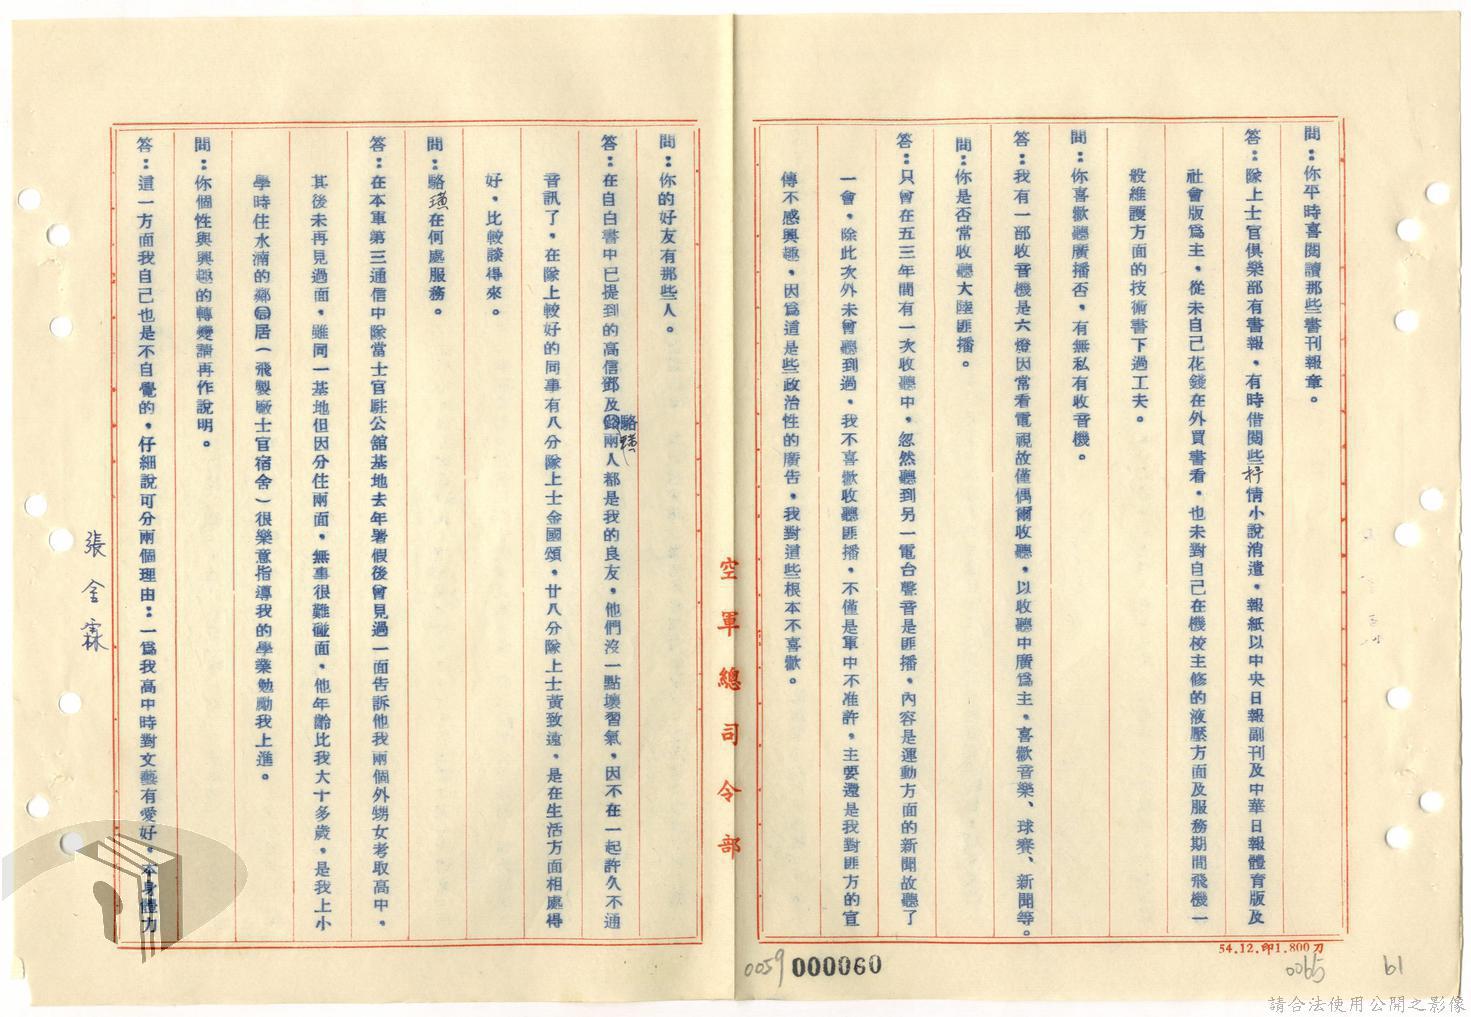 問：你平時喜閱讀那些書刊報章。
答：隊上士官俱樂部有書報、有時借閱些抒情小說消遣，報紙以中央日報副刊及中華日報體育版及
社會版為主，從未自己花錢在外買書看，也未對自己在機校主修的液壓方面及服務期間飛機一
般維護方面的技術書下過工夫。
問：你喜歡聽廣播否，有無私有收音機。
答：我有一部收音機是六燈因常看電視故僅偶爾收聽，以收聽中廣為主，喜歡音樂、球賽、新聞等。
問：你是否常收聽大陸匪播。
答：只曾在五三年間有一次收聽中，忽然聽到另一電台聲音是匪播，內容是運動方面的新聞故聽了
一會，除此次外未曾聽到過，我不喜歡收聽匪播，不僅是軍中不准許，主要還是我對匪方的宣
傳不感興趣，因為這是些政治性的廣告，我對這些根本不喜歡。
54.12.印1.800刀
空軍總司令部
問：你的好友有那些人。
答：在自白書中已提到的高信鄧及駱璜兩人都是我的良友，他們沒一點壞習氣，因不在一起許久不通
音訊了，在隊上較好的同事有八分隊上士金國頌，廿八分隊上士黃致遠，是在生活方面相處得
好，比較談得來。
問：駱璜在何處服務。
答：在本軍第三通信中隊當士官駐公館基地去年暑假後曾見過一面告訴他我兩個外甥女考取高中，
其後未再見過面，雖同一基地但因分住兩面，無事很難碰面，他年齡比我大十多歲，是我上小
學時住水湳的鄰居（飛製廠士官宿舍）很樂意指導我的學業勉勵我上進。
問：你個性與興趣的轉變請再作說明。
答：這一方面我自己也是不自覺的，仔細說可分兩個理由：一為我高中時對文藝有愛好，本身體力
張金霖
0059
000060
0065
61
請合法使用公開之影像